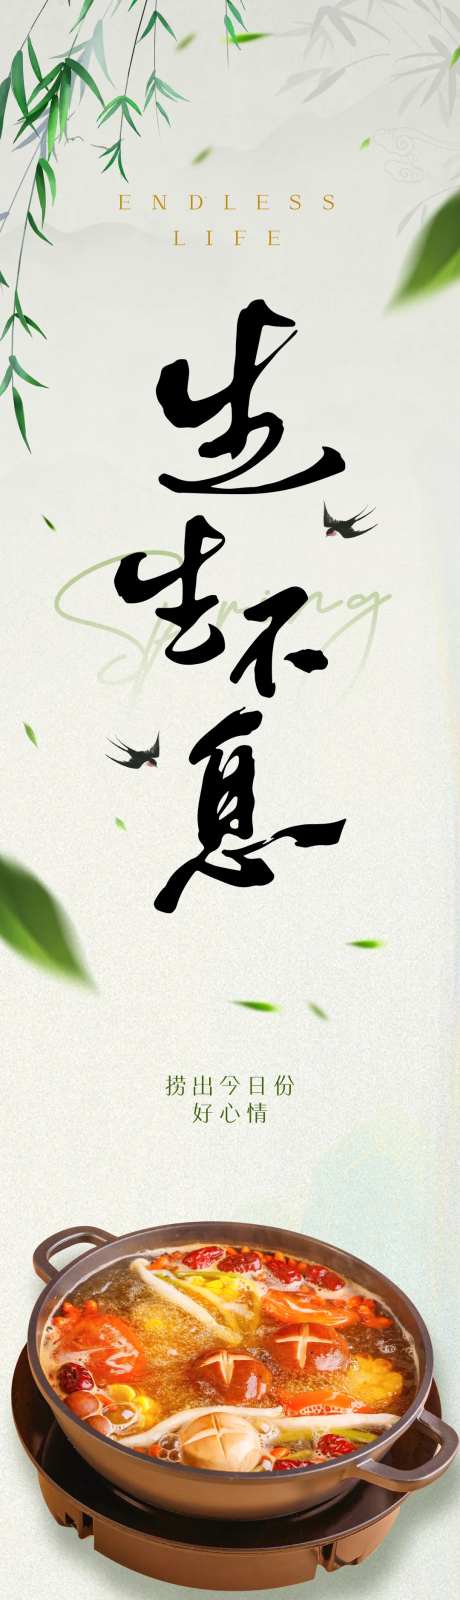 ENDLESS
LIFE
生
生不
息
Spring
捞出今日份
好心情